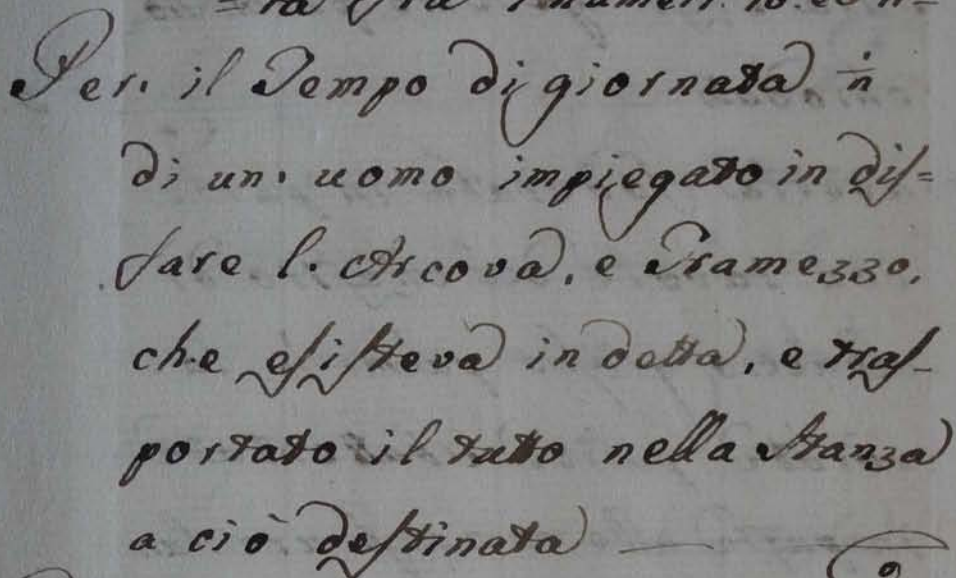 Per. il Tempo di giornata ½
di un. uomo impiegato in dis=
fare l. Arcova, e Tramezzo,
che esisteva in detta, e tras=
portato il tutto nella Stanza
a ciò destinata